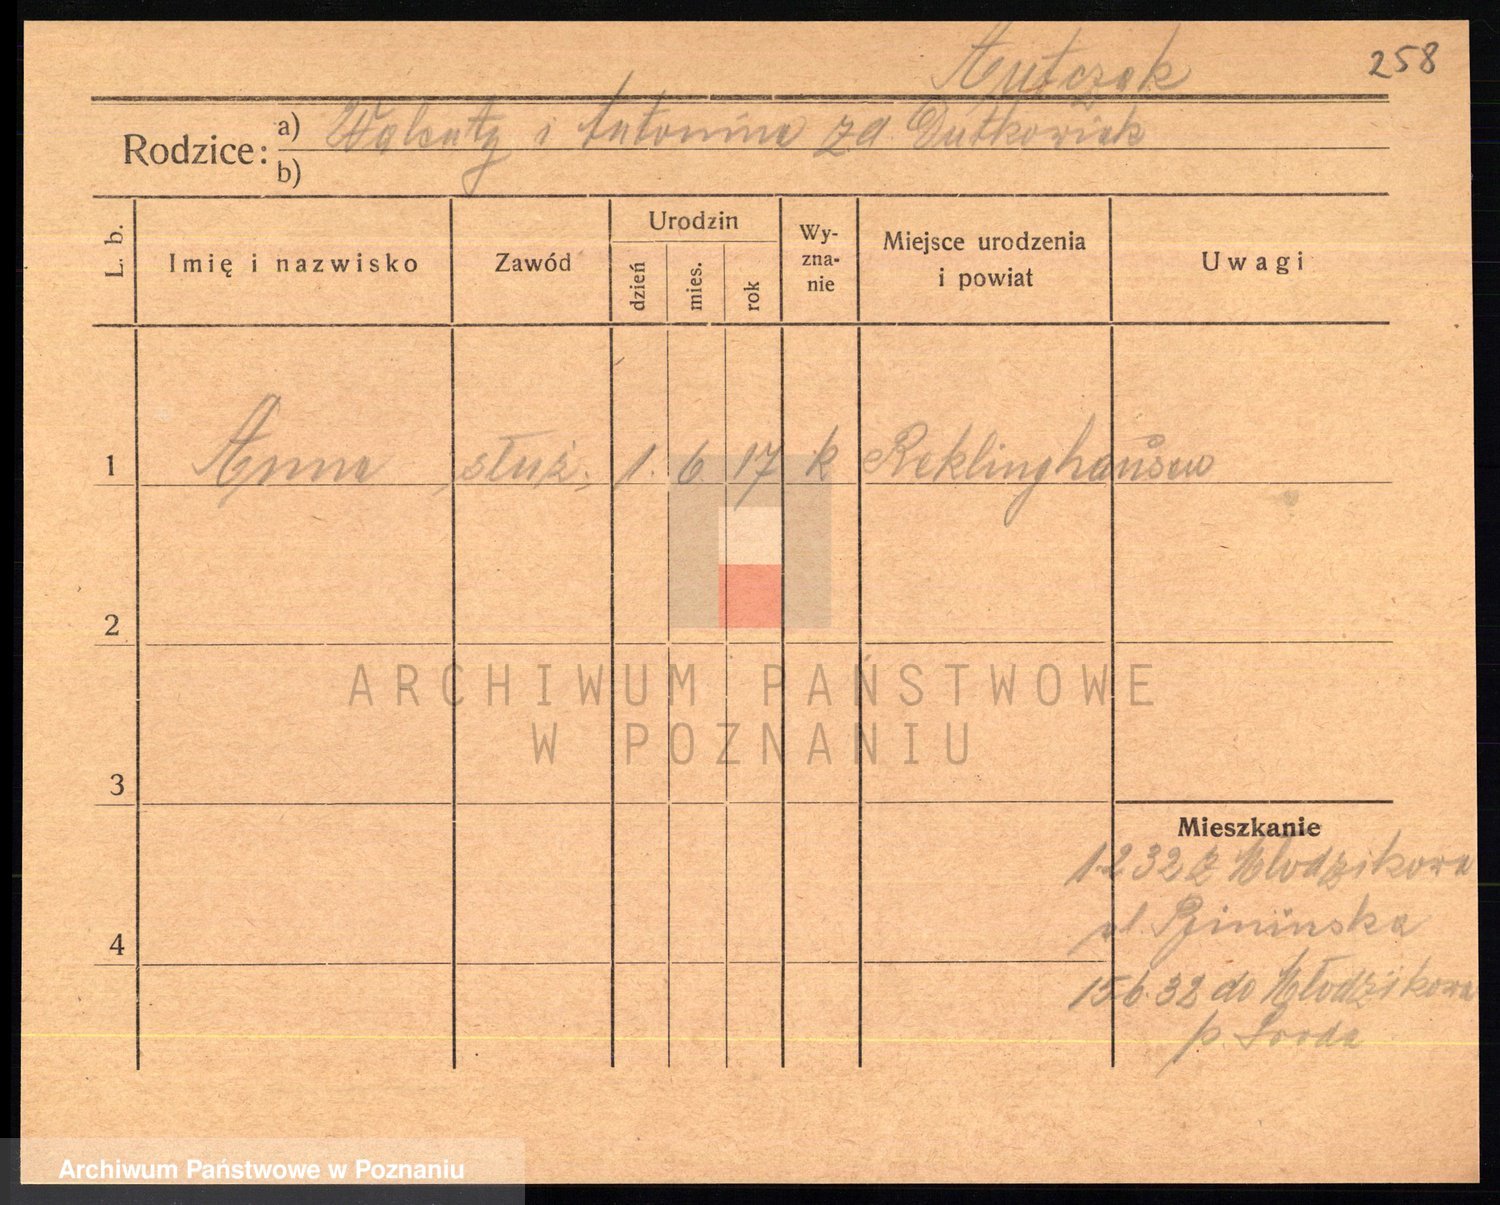 258
Antczak
Rodzice: a) Walenty i Antonina zd Dutkowiak
b)
L. b. Imię i nazwisko Zawód Urodzin dzień mies. rok Wy-zna-nie Miejsce urodzenia i powiat Uwagi
1 Anna służ. 1. 6 17 k Reklinghausen
2
ARCHIWUM PAŃSTWOWE
W POZNANIU
3
Mieszkanie
1.2 32 z Młodzikowa
ul.
4
15.6.32 do Młodzikowa
p. Sroda
Archiwum Państwowe w Poznaniu